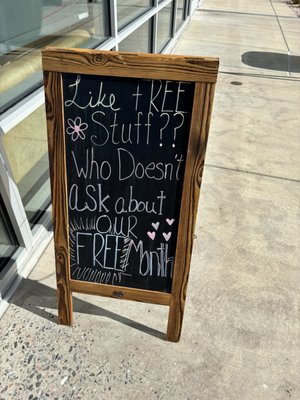 Like FREE
Stuff??
Who Doesn't
ask about
OUR
FREE Month